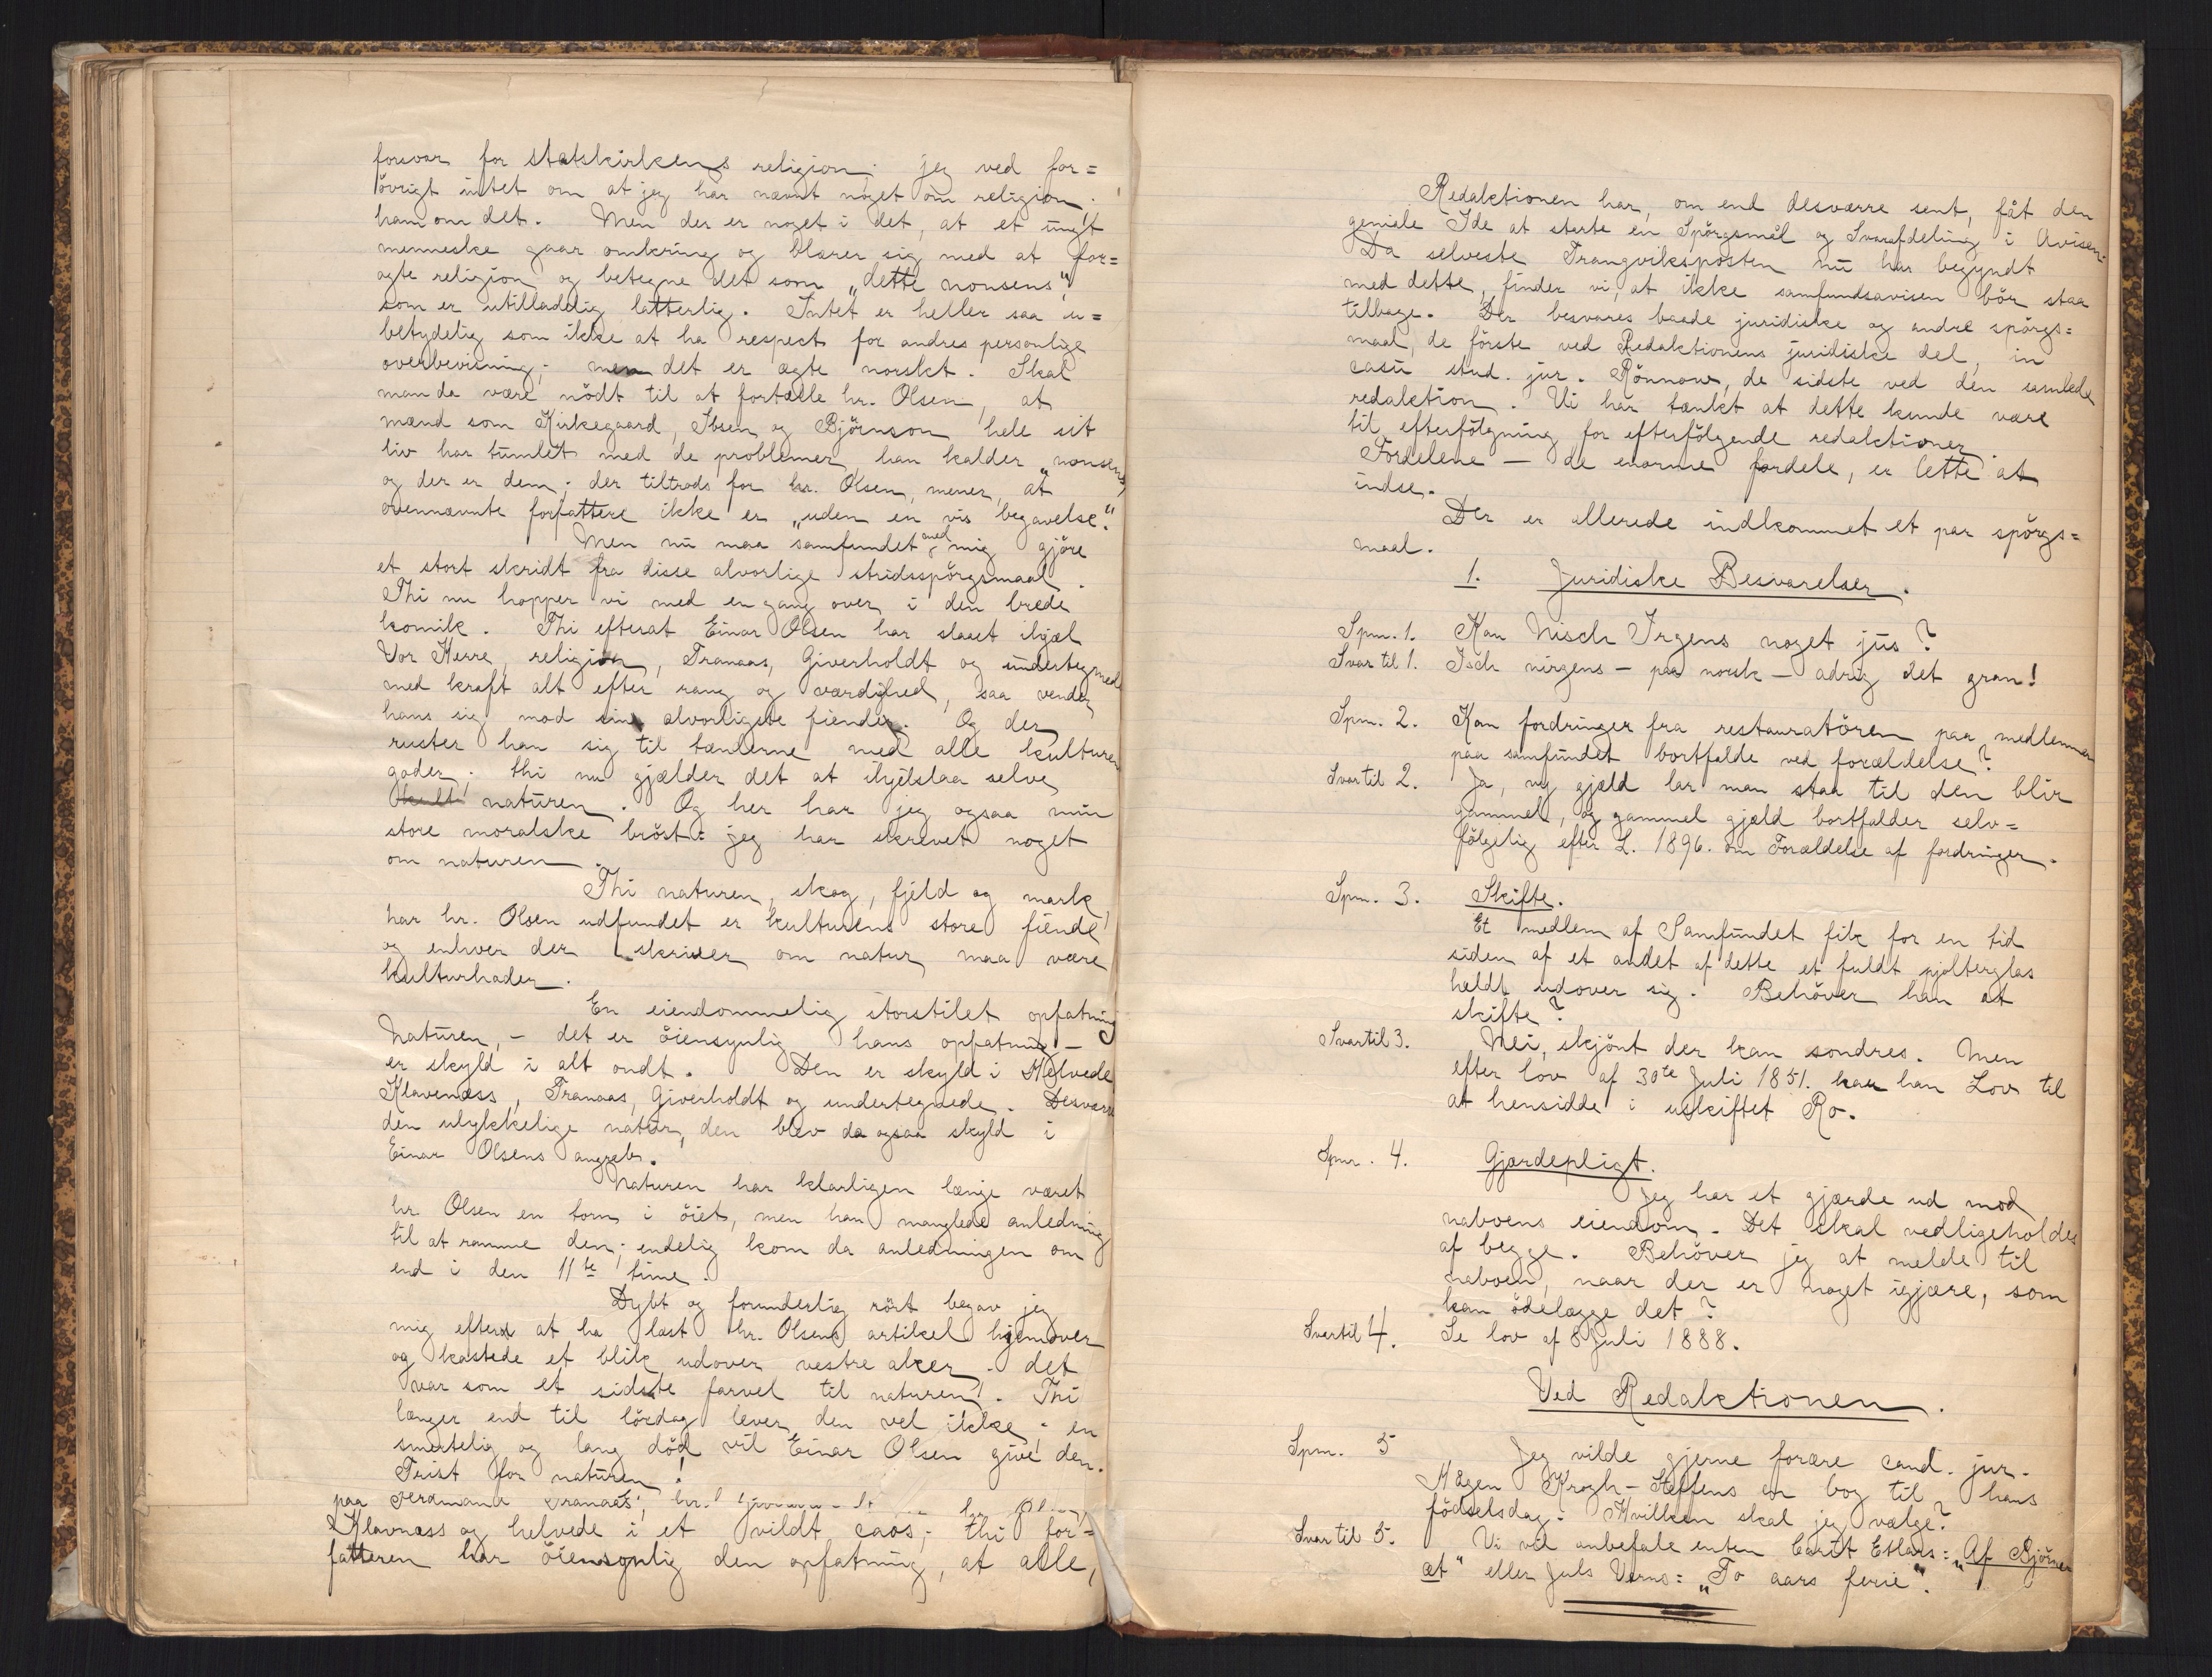 forsvar for statskirkens religion; jeg ved for=
övrigt intet om at jeg har nævnt noget om religion.
ham om det. Men der er noget i det, at et ungt
menneske gaar omkring og blærer sig med at for=
agte religion og betegne det som „dette nonsens",
som er utilladelig latterlig. Intet er heller saa u=
betydelig som ikke at ha respect for andres personlige
overbevisning; men det er ægte norskt. Skal
man da være nödt til at fortælle hr. Olsen, at
mænd som Kirkegaard, Ibsen og Björnson hele sit
liv har tumlet med de problemer, han kalder „nonsens"
og der er dem, der tiltrods for hr. Olsen, mener, at
ovennævnte forfattere ikke er „uden en vis begavelse".
Men nu maa samfundet med mig gjöre
et stort skridt fra disse alvorlige stridsspörgsmaal.
Thi nu hopper vi med en gang over i den brede
komik. Thi efterat Einar Olsen har slaaet ihjæl
Vor Herre, religion, Tranaas, Giverholdt og undertegnede
med kraft alt efter rang og værdighed, saa vender
hans sig mod sine alvorligste fiender. Og der
ruster han sig til tænderne med alle kulturens
goder; thi nu gjælder det at ihjelslaa selve
naturen. Og her har jeg ogsaa min
store moralske bröst: jeg har skrevet noget
om naturen
Thi naturen, skog, fjeld og mark,
har hr. Olsen udfundet er kulturens store fiende
og enhver der skriver om natur, maa være
kulturhader.
En eiendommelig storstilet opfatning
Naturen, – det er öiensynlig hans opfatning –
er skyld i alt ondt. Den er skyld i Helvede
Klavenæss, Tranaas, Giverholdt og undertegnede. Desværre
den ulykkelige natur, den blev da ogsaa skyld i
Einar Olsens angreb.
Naturen har klarligen længe været
hr. Olsen en torn i öiet, men han manglede anledning
til at ramme den; endelig kom da anledningen om
end i den 11te time.
Dybt og forunderlig rört begav jeg
mig efter at ha læst hr. Olsens artikel hjemover
og kastede et blik udover vestre aker. det
var som et sidste farvel til naturen!. Thi
længer end til lördag lever den vel ikke; en
smertelig og lang död vil Einar Olsen give den.
Trist for naturen!
paa Ferdinand Tranaas, hr.
Klavnæss og helvede i et vildt caos; thi for=
fatteren har öiensynlig den opfatning, at alle,
Redaktionen har, om end desværre sent, fåt den
geniale Ide at starte en Spörgsmål og Svarafdeling i Avisen.
Da selveste Trangviksposten nu har begyndt
med dette, finder vi, at ikke samfundsavisen bör staa
tilbage. Der besvares baade juridiske og andre spörgs=
maal, de förste ved Redaktionens juridiske del, in
casu stud. jur. Rönnow, de sidste ved den samlede
redaktion. Vi har tænkt at dette kunde være
til efterfölgning for efterfölgende redaktioner.
Fordelene – de enorme fordele, er lette at
indse.
Der er allerede indkommet et par spörgs=
maal.
1. Juridiske Besvarelser.
Spm. 1. Kan Nisch Irgens noget jus?
Svar til 1. Isch nirgens – paa norsk – adrig det gran!
Spm. 2. Kan fordringer fra restauratören paa medlemmer
paa samfundet bortfalde ved forældelse?
Svar til 2. Ja, ny gjæld lar man staa til den blir
gammel, og gammel gjæld bortfalder selv=
fölgelig efter L. 1896. om Forældelse af fordringer.
Spm. 3. Skifte.
Et medlem af Samfundet fik for en tid
siden af et andet af dette et fuldt pjolterglas
heldt udover sig. Behöver han at
skifte?
Svar til 3. Nei, skjönt der kan sondres. Men
efter lov af 30te Juli 1851. har han Lov til
at hensidde i uskiftet Ro.
Spm. 4. Gjærdepligt.
Jeg har et gjærde ud mod
naboens eiendom. Det skal vedligeholdes
af begge. Behöver jeg at melde til
naboen, naar der er noget igjære, som
kan ödelægge det?
Svar til 4. Se lov af 8 Juli 1888.
Ved Redaktionen.
Spm. 5 Jeg vilde gjerne forære cand. jur.
Mägen Krogh-Steffens en bog til hans
födselsdag. Hvilken skal jeg vælge?
Svar til 5. Vi vil anbefale enten Carit Etlars: „Af Björnens
æt" eller Juls Verns: „To aars ferie".